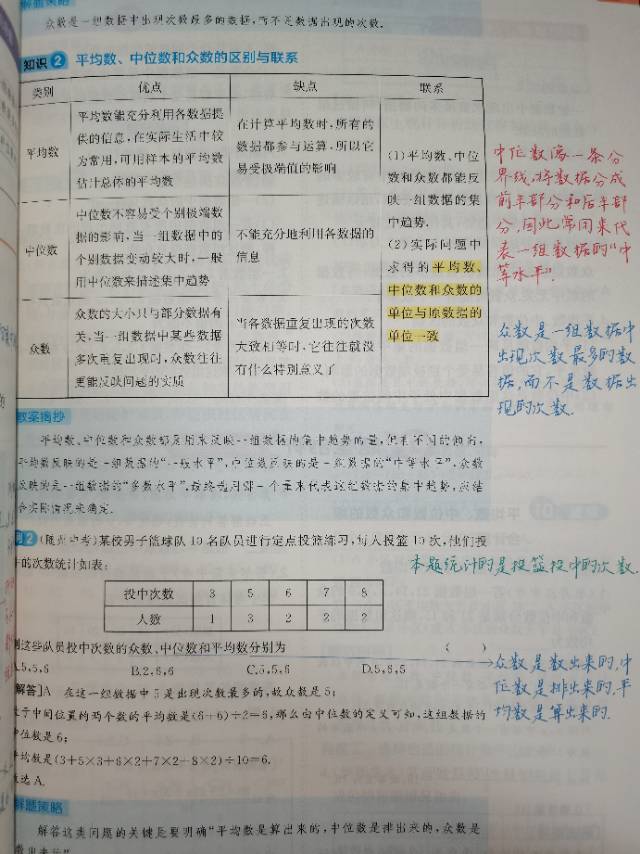 解题策略
众数是一组数据中出现次数最多的数据,而不是数据出现的次数.
知识2 平均数、中位数和众数的区别与联系
类别 优点 缺点 联系
平均数
平均数能充分利用各数据提
供的信息,在实际生活中较
为常用,可用样本的平均数
估计总体的平均数
在计算平均数时,所有的
数据都参与运算,所以它
易受极端值的影响
中位数
中位数不容易受个别极端数
据的影响,当一组数据中的
个别数据变动较大时,一般
用中位数来描述集中趋势
不能充分地利用各数据的
信息
众数
众数的大小只与部分数据有
关,当一组数据中某些数据
多次重复出现时,众数往往
更能反映问题的实质
当各数据重复出现的次数
大致相等时,它往往就没
有什么特别意义了
(1)平均数、中位
数和众数都能反
映一组数据的集
中趋势.
(2)实际问题中
求得的平均数、
中位数和众数的
单位与原数据的
单位一致
中位数像一条分
界线,将数据分成
前半部分和后半部
分,因此常用来代
表一组数据的“中
等水平”.
众数是一组数据中
出现次数最多的数
据,而不是数据出
现的次数.
教案摘抄
平均数、中位数和众数都是用来反映一组数据的集中趋势的量,但有不同的侧向,
平均数反映的是一组数据的“一般水平”,中位数反映的是一组数据的“中等水平”,众数
反映的是一组数据的“多数水平”.最终选用哪一个量来代表这组数据的集中趋势,应结
合实际情况来确定.
例2 (随州中考)某校男子篮球队10名队员进行定点投篮练习,每人投篮10次,他们投
中的次数统计如表:
本题统计的是投篮投中的次数.
投中次数 3 5 6 7 8
人数 1 3 2 2 2
则这些队员投中次数的众数、中位数和平均数分别为 ( )
A.5,6,6 B.2,6,6 C.5,5,6 D.5,6,5
众数是数出来的,中
位数是排出来的,平
均数是算出来的.
[解答]A 在这一组数据中5是出现次数最多的,故众数是5;
处于中间位置的两个数的平均数是(6+6)÷2=6,那么由中位数的定义可知,这组数据的
中位数是6;
平均数是(3+5×3+6×2+7×2+8×2)÷10=6.
故选A.
解题策略
解答这类问题的关键是要明确“平均数是算出来的,中位数是排出来的,众数是
数出来的”